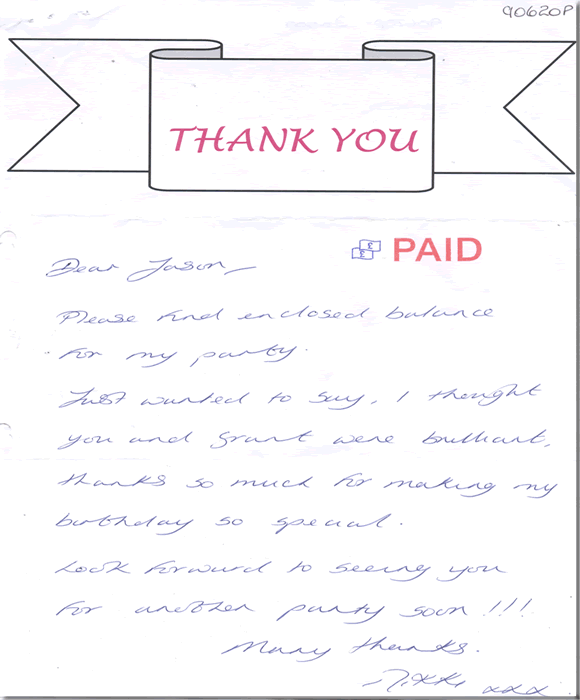 90620P
THANK YOU
£ £ PAID
Dear Jason,
Please find enclosed balance
for my party.
Just wanted to say, I thought
you and Grant were brilliant,
thanks so much for making my
birthday so special.
Look forward to seeing you
for another party soon !!!
Many thanks.
Nikki xxx